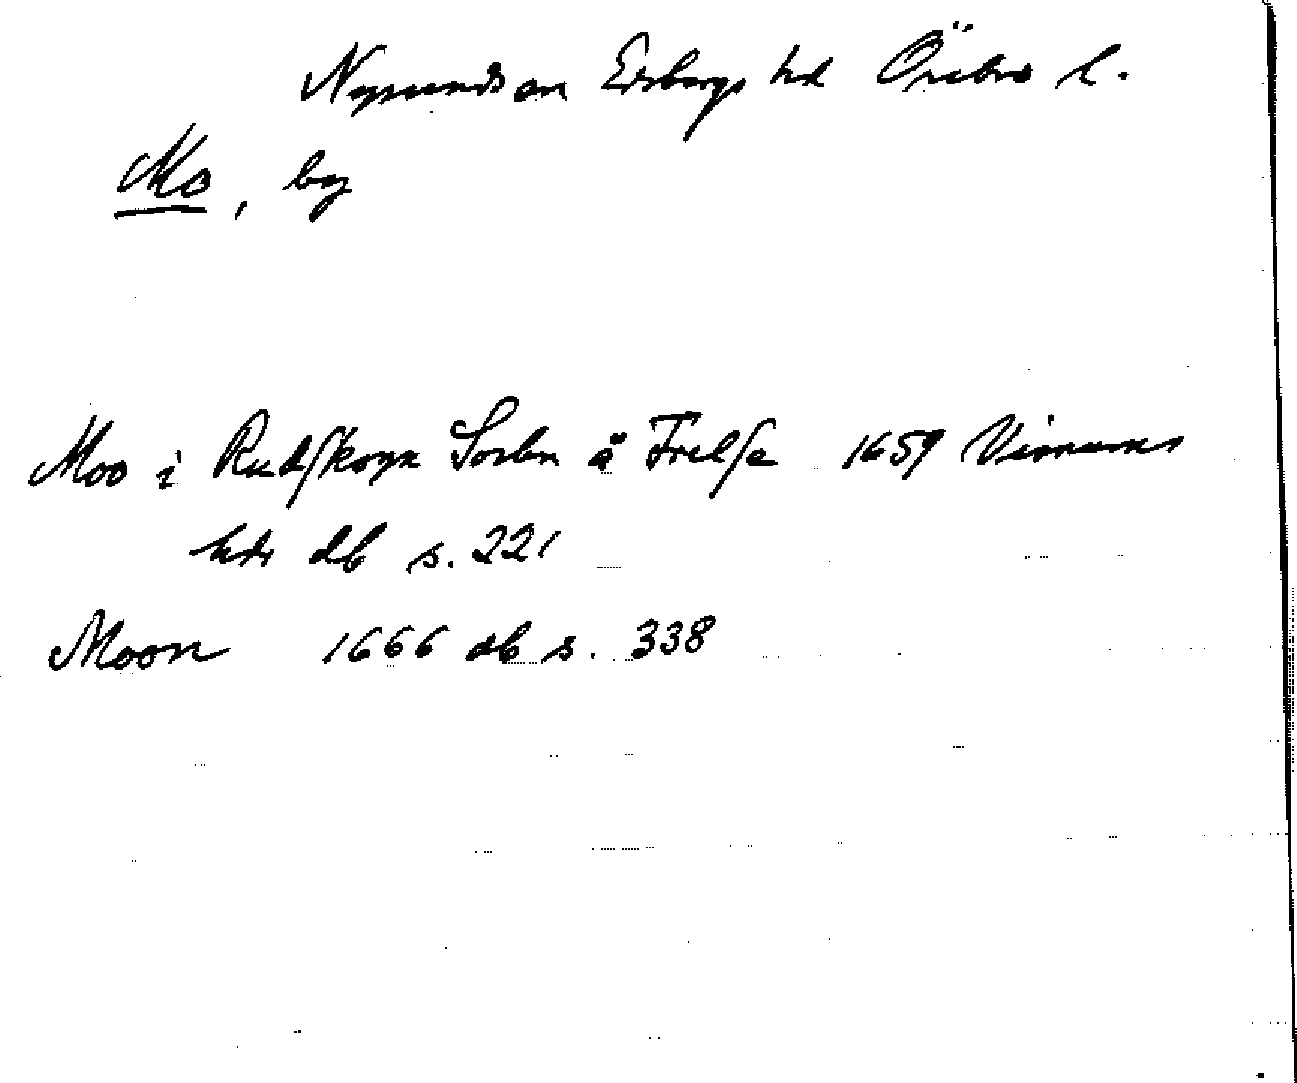 Nysunds sn Edsbergs hd Örebro l.
Mo, by
Moo i Rudsskoga Soclen ä Frelse 1659 Visnums
hds db s. 221
Moon 1666 db s. 338